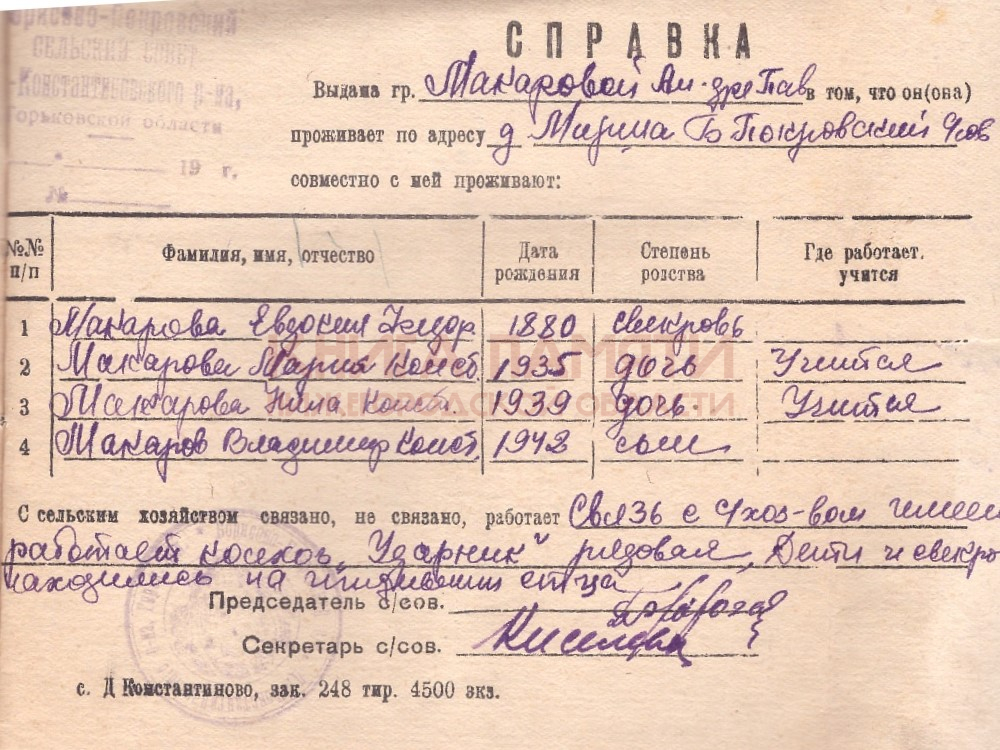 Борисово-Покровский
СЕЛЬСКИЙ СОВЕТ
Д-Константиновского р-на,
Горьковской области
19 г.
№
СПРАВКА
Выдана гр. Макаровой Ал-дре Пав в том, что он(она)
проживает по адресу д Б Покровский с/сов
совместно с ней проживают:
№№ п/п Фамилия, имя, отчество Дата рождения Степень родства Где работает. учится
1 Макарова Евдокия Федор 1880 свекровь
2 Макарова Мария Конст. 1935 дочь Учится
3 Макарова Нина Конст. 1939 дочь Учится
4 Макаров Владимир Конст. 1942 сын
КНИГА ПАМЯТИ
НИЖЕГОРОДСКОЙ ОБЛАСТИ
С сельским хозяйством связано, не связано, работает Связь с с/хоз-вом имеет
работает колхоз „Ударник" рядовая. Дети и свекро
находились на иждивении отца
Председатель с/сов.
Секретарь с/сов. Киселева
с. Д Константиново, зак. 248 тир. 4500 экз.